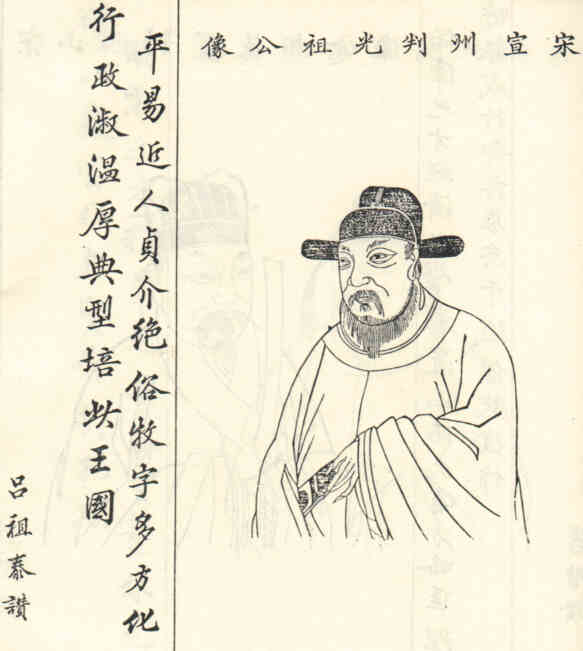 宋宣州判光祖公像
平易近人貞介絶俗牧字多方化
行政淑温厚典型培此王國
呂祖泰讃